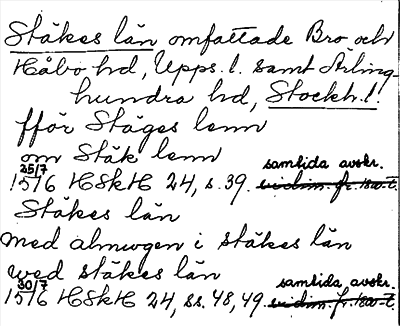 Stäkes län omfattade Bro och
Håbo hd, Upps. l. samt Ärling-
hundra hd, Stockh. l.
fför Stäges lenn
om Stäk lenn
25/7 samtida avskr.
1516 HSkH 24, s. 39. vidim. fr. 1500-t.
Stäkes län
med almwgen i stäkes län
wed stäkes län
30/7 samtida avskr.
1516 HSkH 24, ss. 48, 49. vidim. fr. 1500-t.